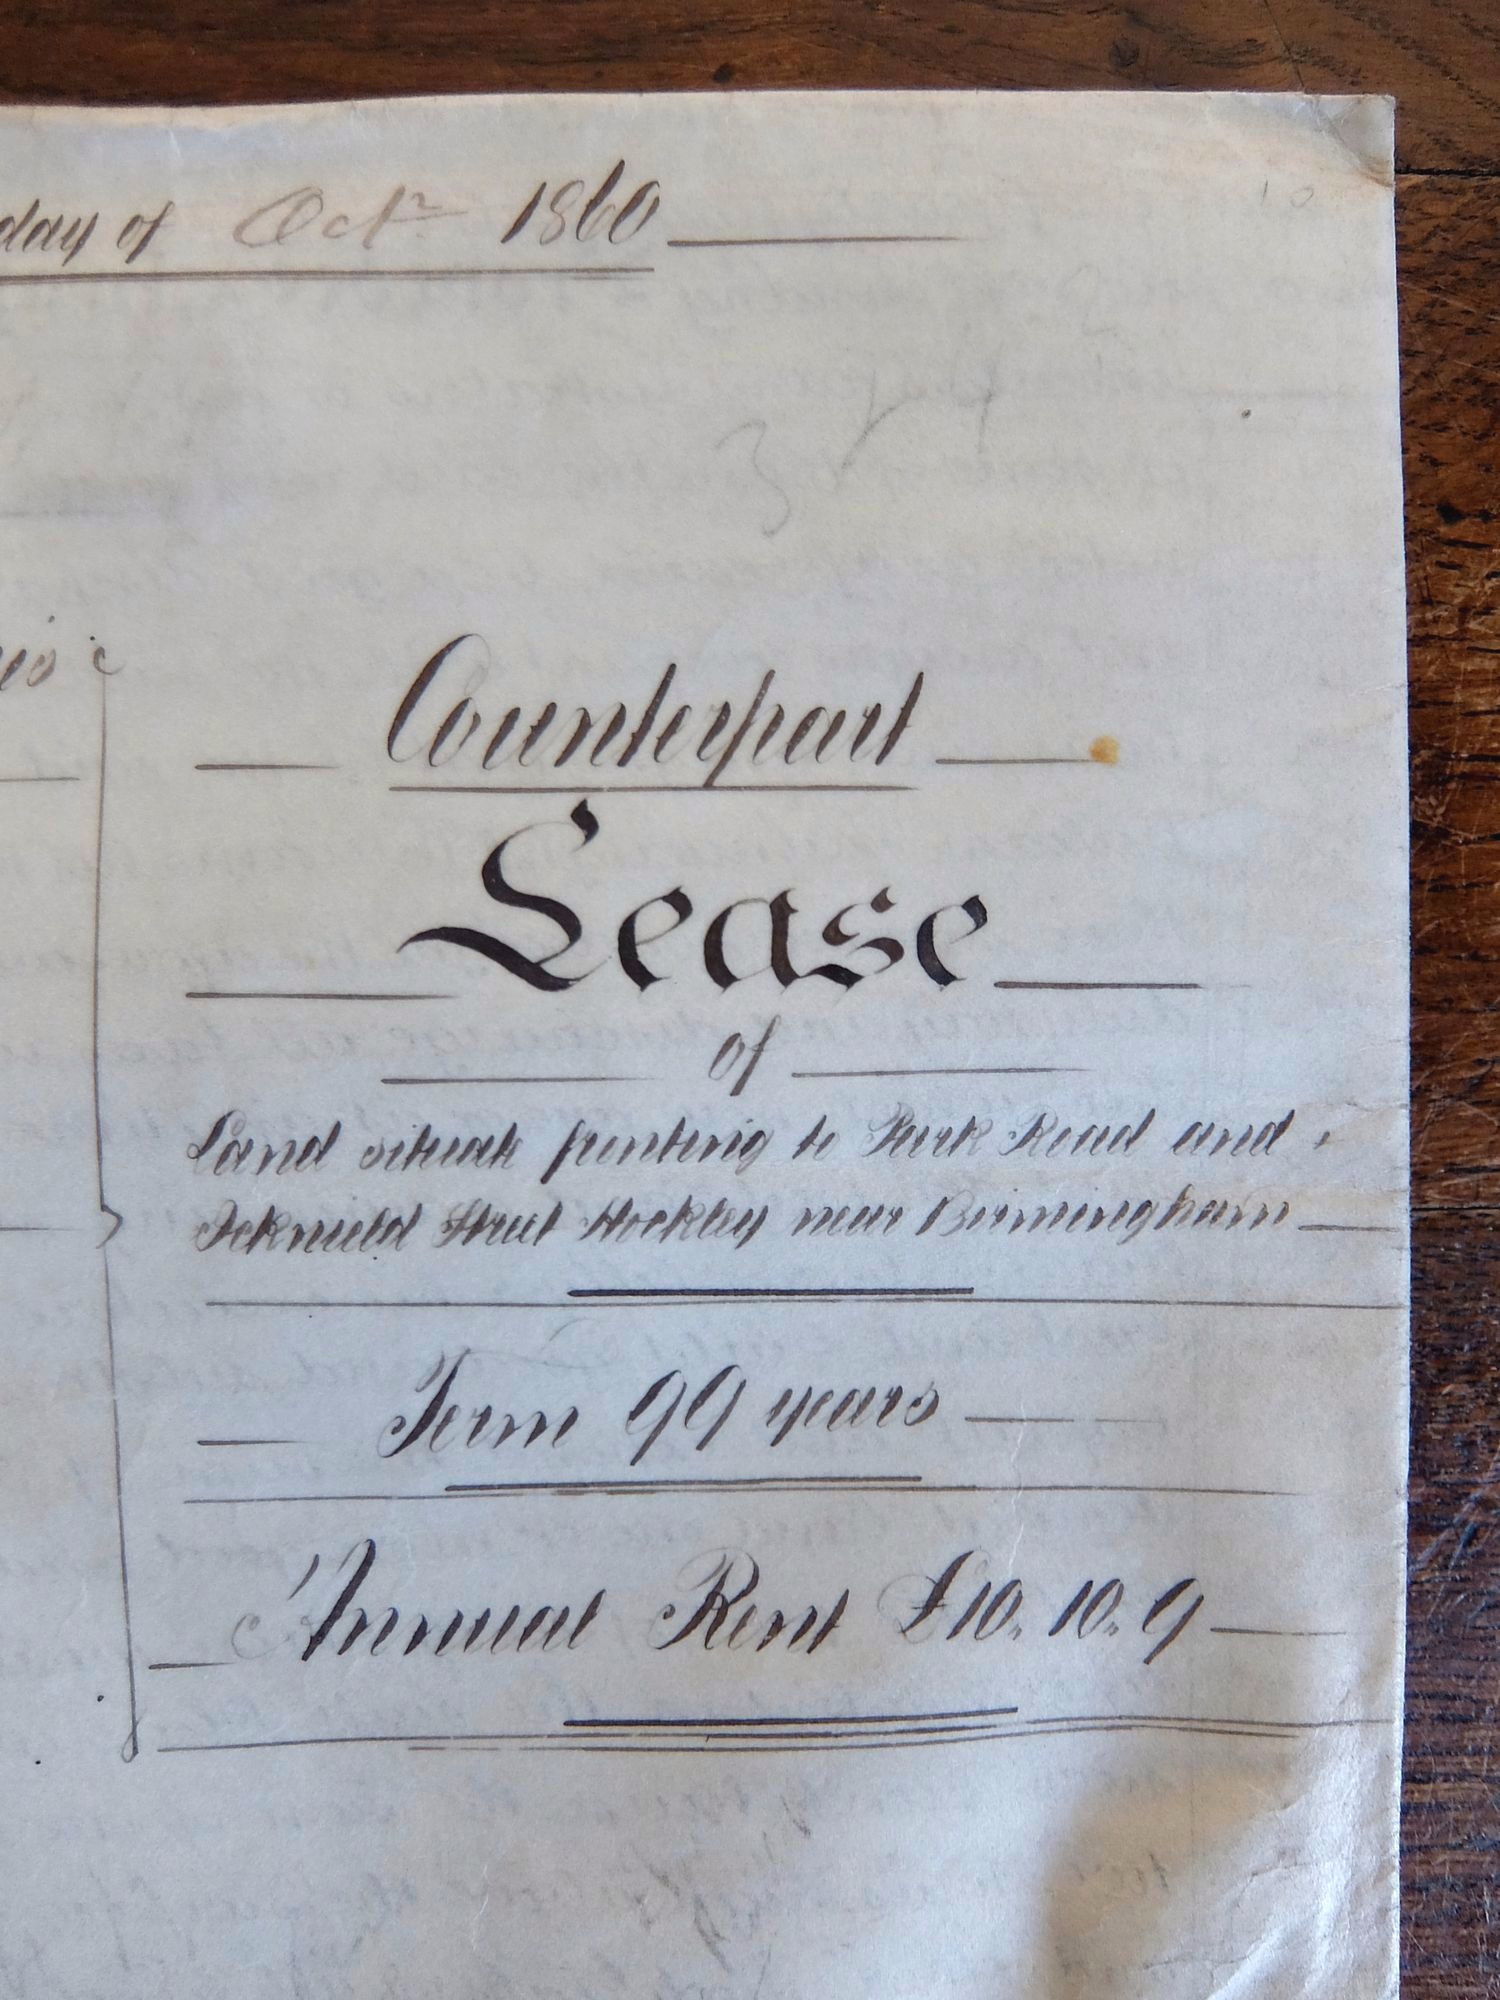 day of Octr 1860
Counterpart
Lease
of
Land situate fronting to Park Road and
Icknield Street Hockley near Birmingham
Term 99 years
Annual Rent £10.10.9